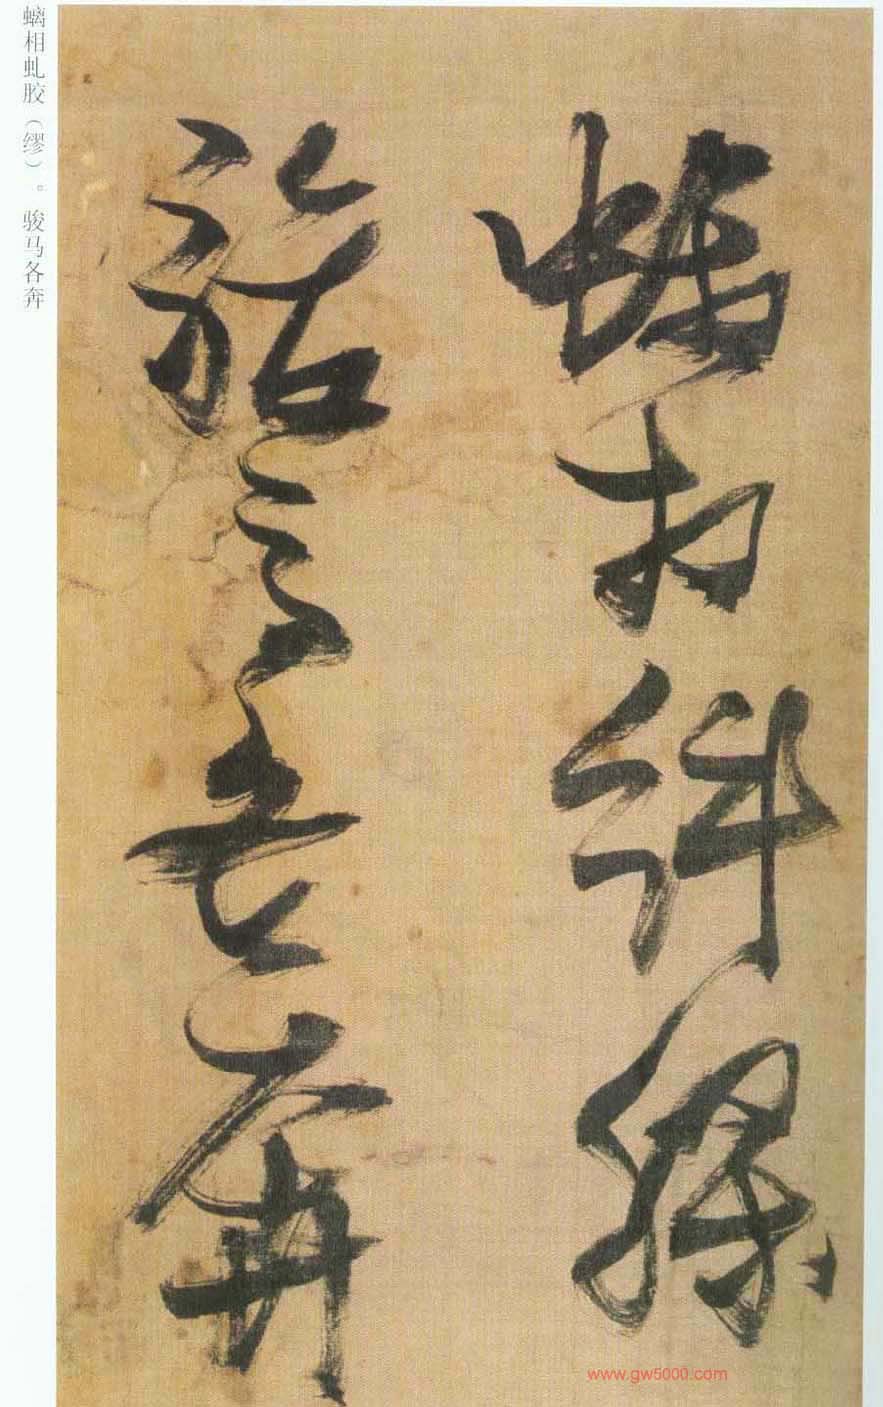 螭相糾繆
駿馬各奔
螭相虬胶（缪）。骏马各奔
www.gw5000.com